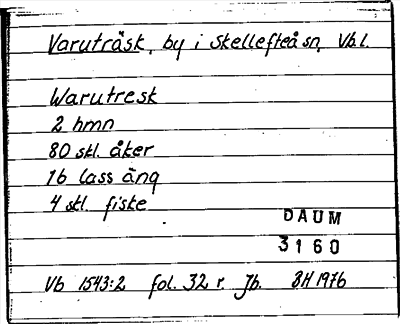 Varuträsk, by i Skellefteå sn, Vbl.
Warutresk
2 hmn
80 skl. åker
16 lass äng
4 skl. fiske
DAUM
3160
Vb 1543:2 fol. 32 r. Jb. BH 1976